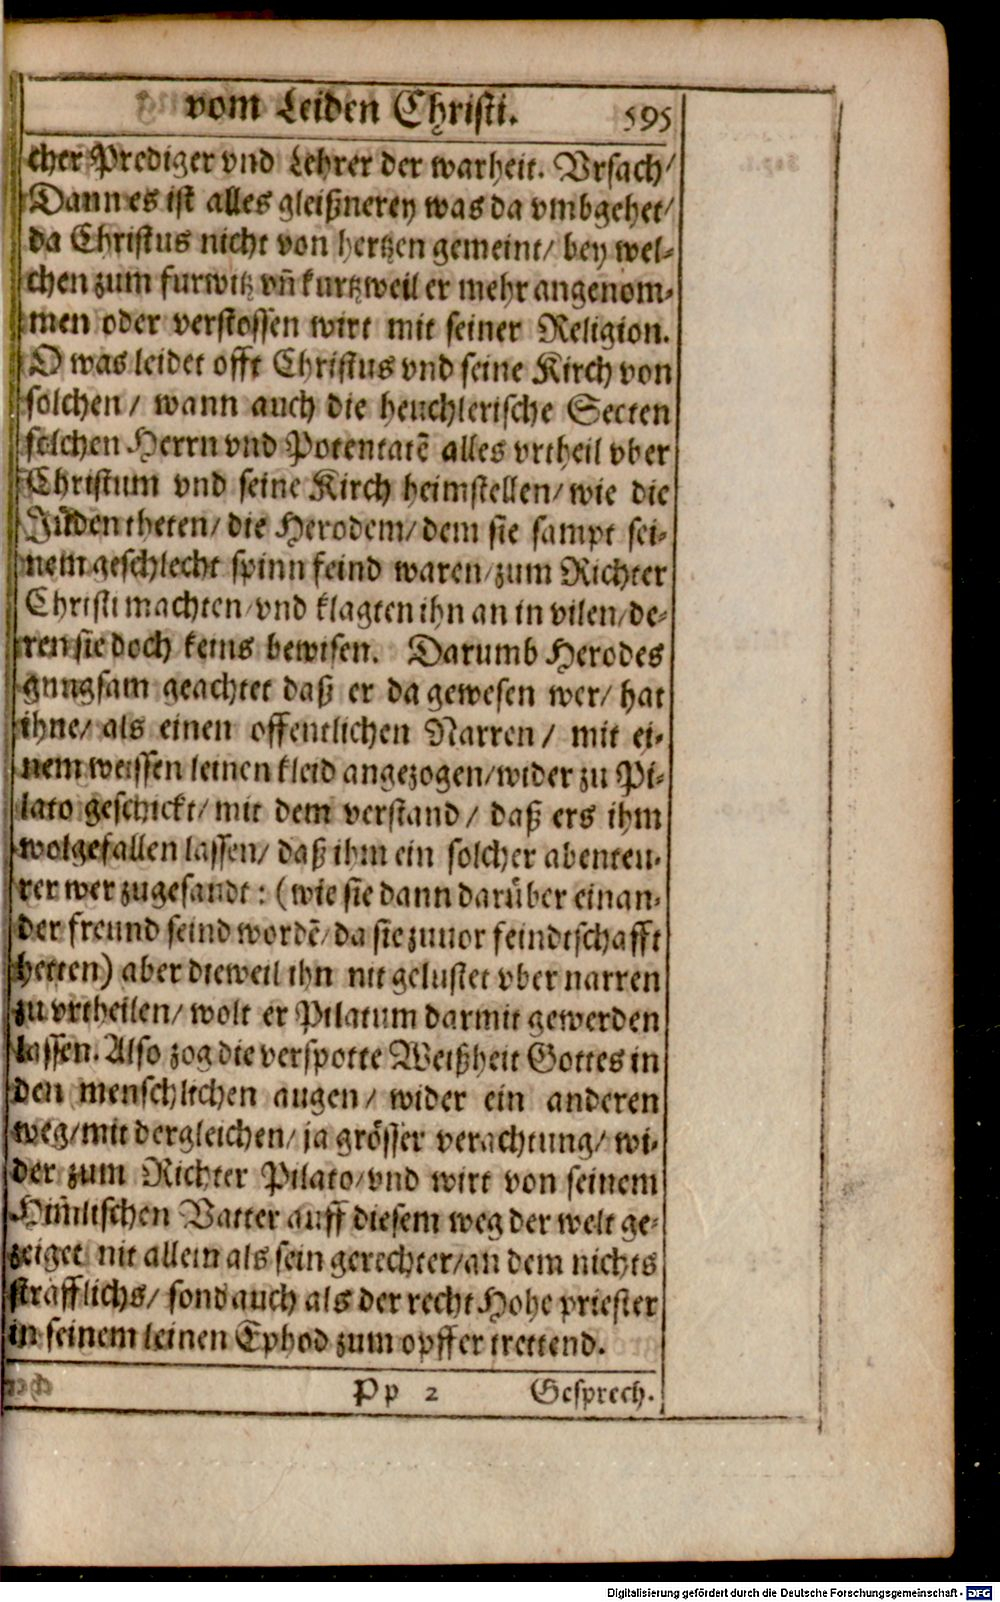 vom Leiden Christi. 595
cher Prediger vnd Lehrer der warheit. Vrsach/
Dann es ist alles gleißnerey was da vmbgehet/
da Christus nicht von hertzen gemeint/ bey wel-
chen zum furwitz vñ kurtzweil er mehr angenom-
men oder verstossen wirt mit seiner Religion.
O was leidet offt Christus vnd seine Kirch von
solchen/ wann auch die heuchlerische Secten
solchen Herrn vnd Potentatẽ alles vrtheil vber
Christum vnd seine Kirch heimstellen/ wie die
Juden theten/ die Herodem/ dem sie sampt sei-
nem geschlecht spinn feind waren/ zum Richter
Christi machten/ vnd klagten ihn an in vilen/ de-
ren sie doch keins bewisen. Darumb Herodes
gnugsam geachtet daß er da gewesen wer/ hat
ihne/ als einen offentlichen Narren/ mit ei-
nem weissen leinen kleid angezogen/ wider zu Pi-
lato geschickt/ mit dem verstand/ daß ers ihm
wolgefallen lassen/ daß ihm ein solcher abenteu-
rer wer zugesandt: (wie sie dann darüber einan-
der freund seind wordẽ/ da sie zuuor feindtschafft
hetten) aber dieweil ihn nit gelustet vber narren
zu vrtheilen/ wolt er Pilatum darmit gewerden
lassen. Also zog die verspotte Weißheit Gottes in
den menschlichen augen/ wider ein anderen
weg/ mit dergleichen/ ja grösser verachtung/ wi-
der zum Richter Pilato/ vnd wirt von seinem
Him̃lischen Vatter auff diesem weg der welt ge-
zeiget nit allein als sein gerechter/ an dem nichts
strafflichs/ sond auch als der recht Hohe priester
in seinem leinen Ephod zum opffer trettend.
Pp 2 Gesprech.
Digitalisierung gefördert durch die Deutsche Forschungsgemeinschaft - DFG